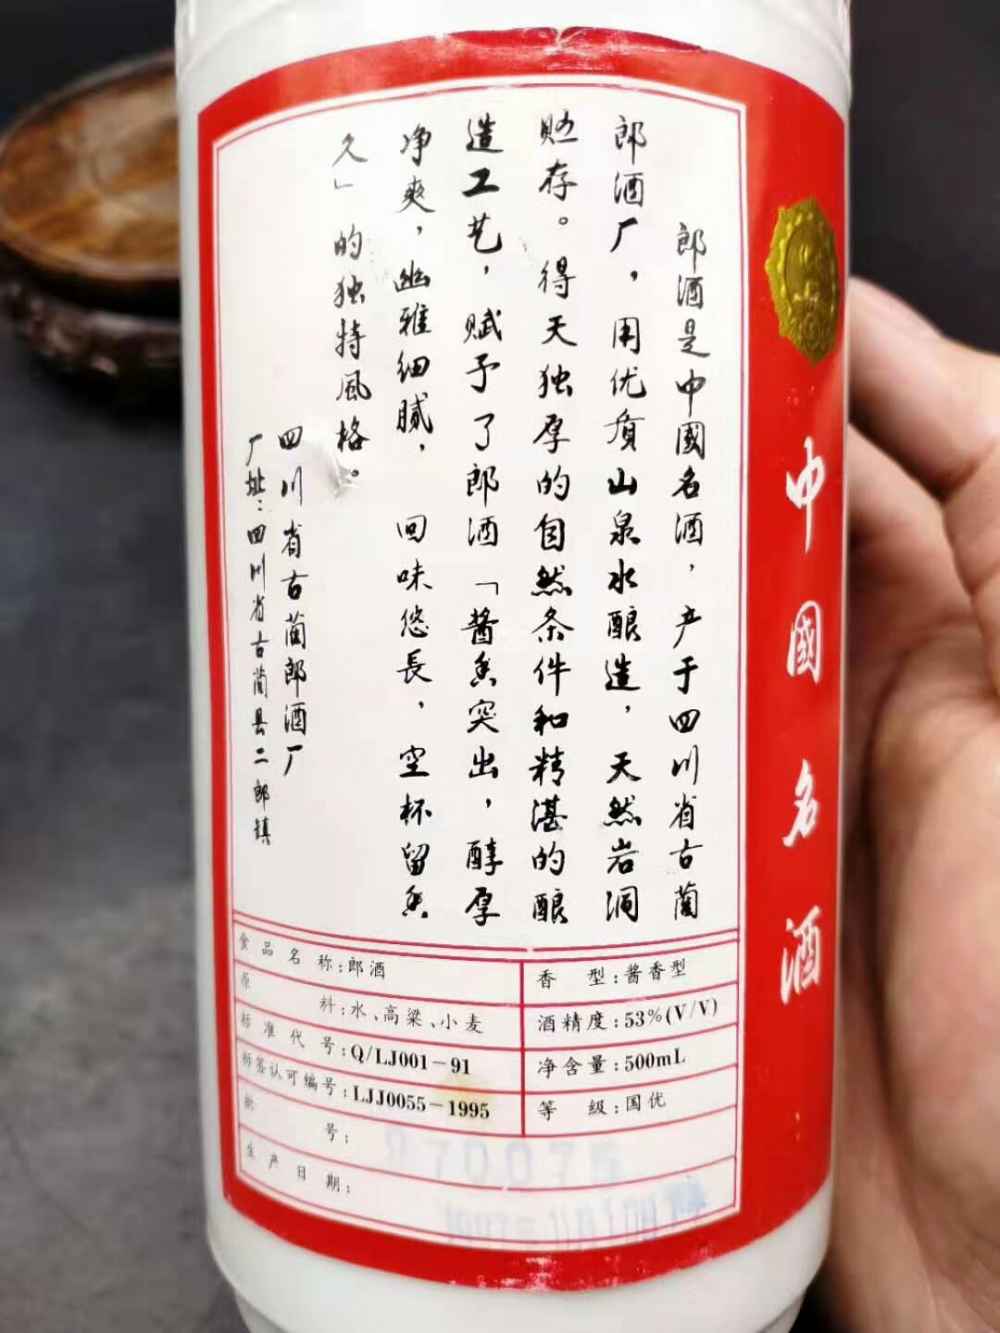 郎酒是中國名酒，产于四川省古蔺
郎酒厂，用优质山泉水酿造，天然岩洞
贮存。得天独厚的自然条件和精湛的酿
造工艺，赋予了郎酒「酱香突出，醇厚
净爽，幽雅细腻，回味悠長，空杯留香
久」的独特風格。
四川省古蔺郎酒厂
厂址：四川省古蔺县二郎镇
中國名酒
食品名称：郎酒
香型：酱香型
原料：水、高粱、小麦
酒精度：53%(V/V)
标准代号：Q/LJ001-91
净含量：500mL
标签认可编号：LJJ0055-1995
等级：国优
批号：970075
生产日期：